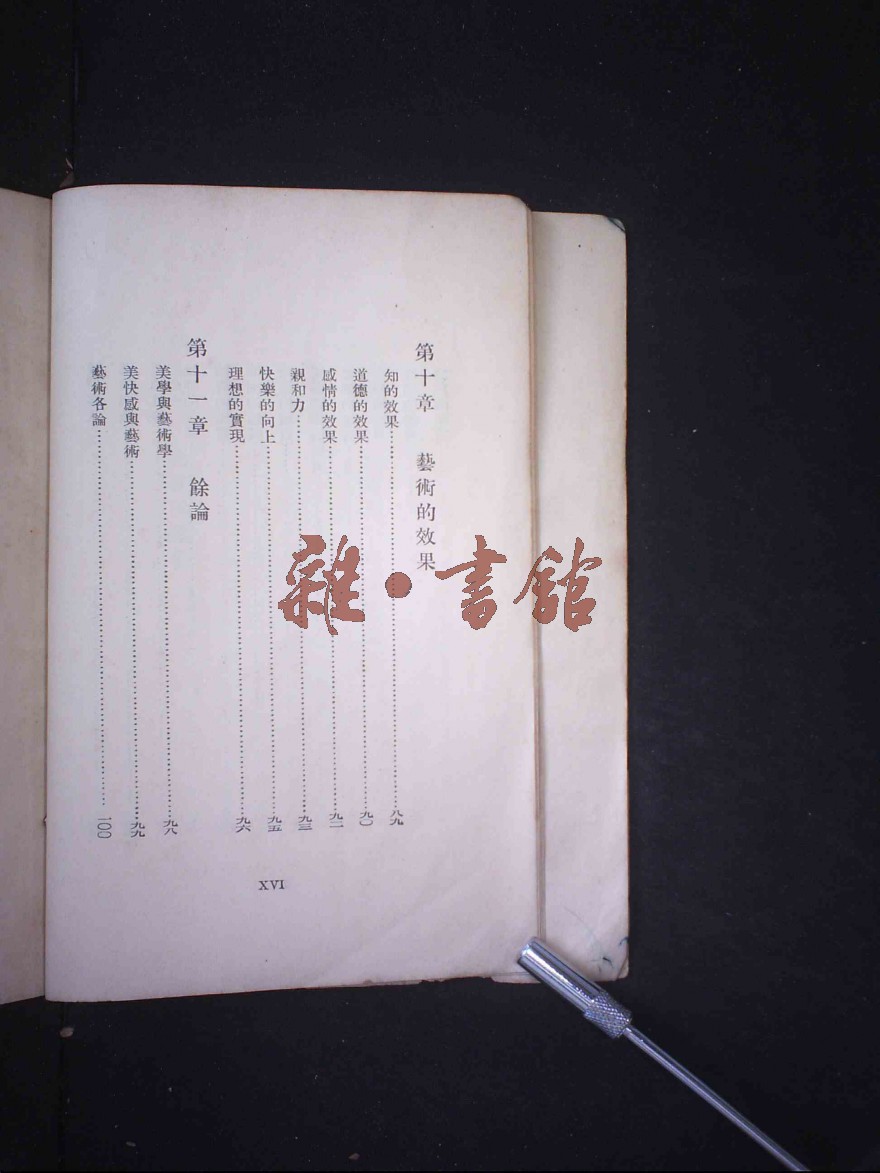 第十章　藝術的效果
知的效果……八九
道德的效果……九〇
感情的效果……九二
親和力……九三
快樂的向上……九五
理想的實現……九六
第十一章　餘論
美學與藝術學……九八
美快感與藝術……九九
藝術各論……一〇〇
XVI
雜·書館